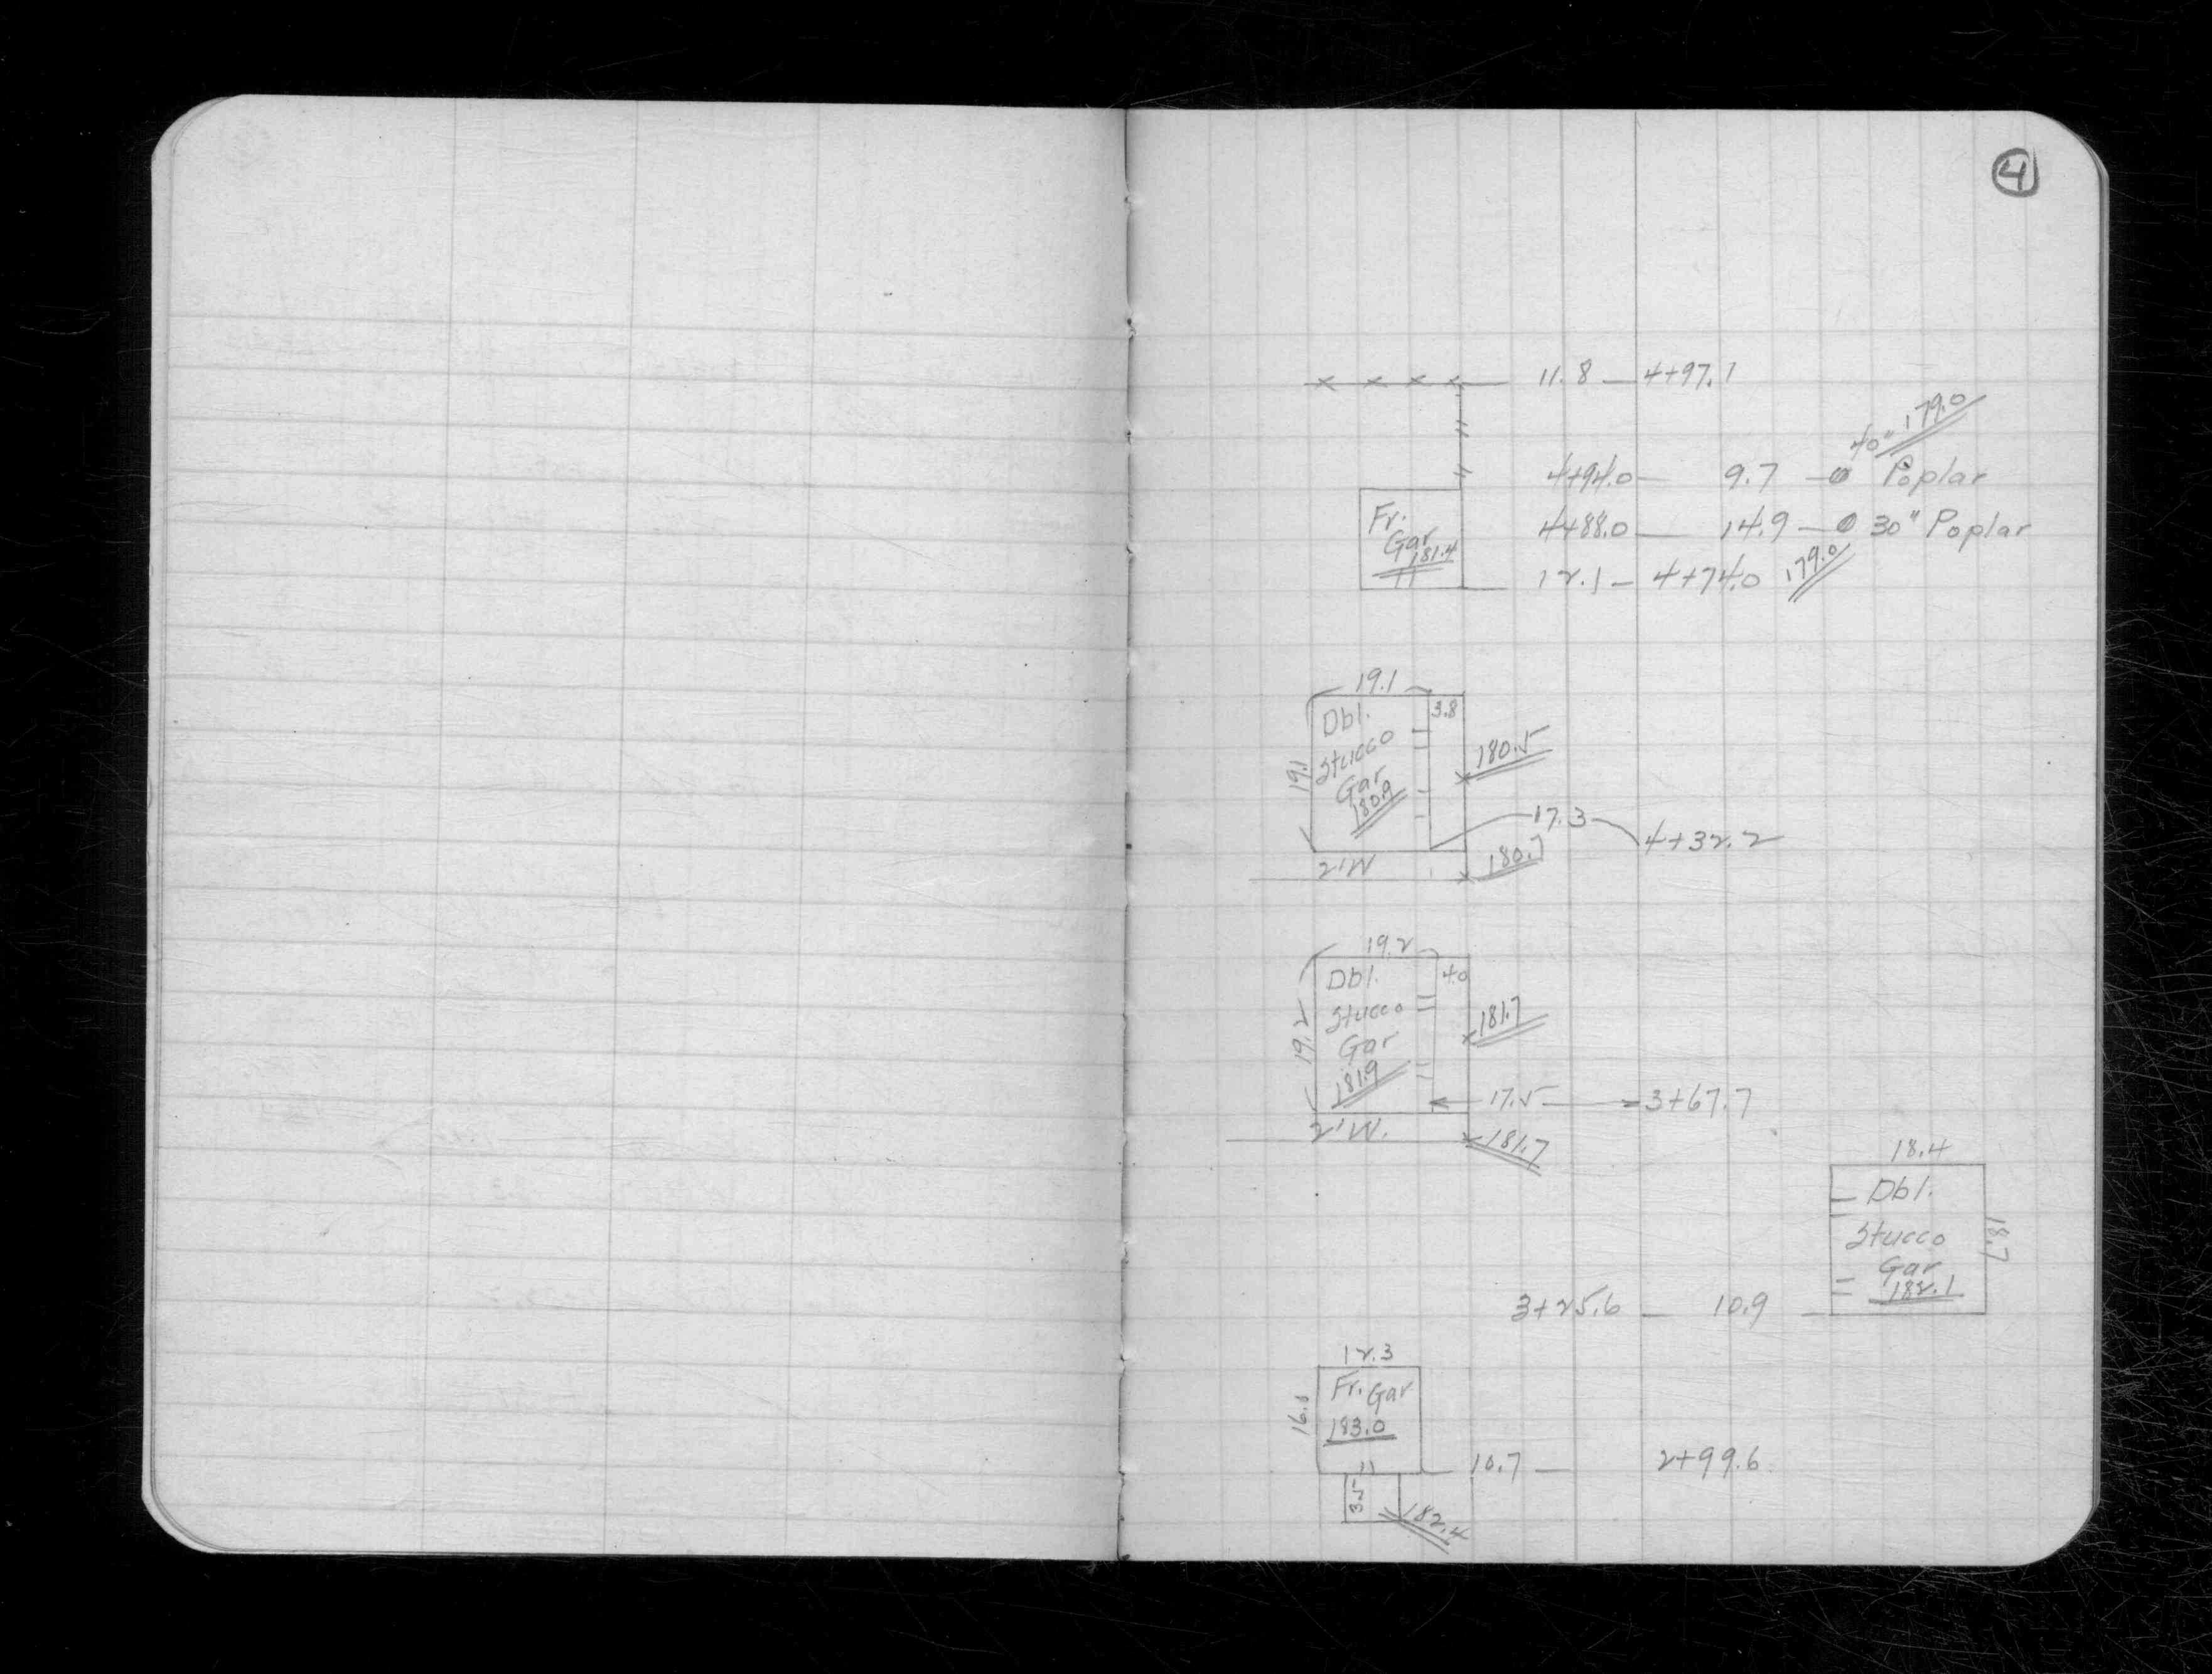 4
11.8 4+97.1
179.0
40"
4+94.0 9.7 Poplar
Fr.
4+88.0 14.9 30" Poplar
Gar
181.4
12.1 4+74.0 179.0
19.1
Dbl. 3.8
Stucco 180.5
19.1
Gar
180.9
17.3
4+32.2
2'W 180.7
19.2
Dbl. 4.0
Stucco 181.7
19.2
Gar
181.9
17.5 3+67.7
2'W. 181.7
18.4
Dbl.
Stucco 18.7
Gar
182.1
3+25.6 10.9
12.3
Fr. Gar
183.0
10.7 2+99.6
3.5
182.4